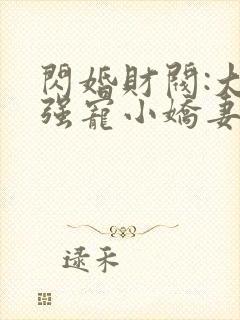 閃婚財閥:大
强寵小嬌妻
逯禾